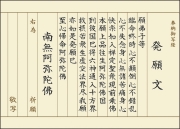 発願文
願弟子等
臨命終時心不顛倒心不錯乱
心不失念身心無諸苦痛身心
快楽如入禅定聖衆現前乗佛
本願上品往生阿弥陀佛國
到彼國已得六神通入十方界
救摂苦衆生虚空法界尽我願
亦如是発願已
至心帰命阿弥陀佛
南無阿弥陀佛
右為
祈願
敬写